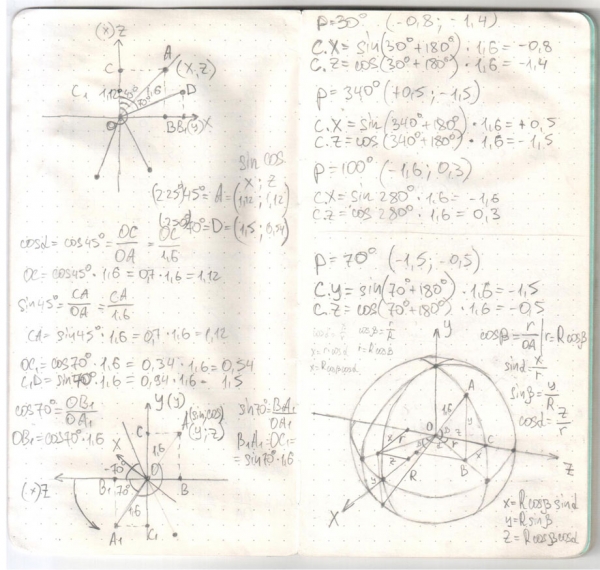 (x)Z
C
A
(X,Z)
C₁
1,12
1,6
D
O
B B₁(y) X
sin cos
x ; z
(225°)45° = A = (1,12; 1,12)
(250°)70° = D = (1,5; 0,54)
cosα = cos45° = OC/OA = OC/1,6
OC = cos45° · 1,6 = 0,7 · 1,6 = 1,12
sin45° = CA/OA = CA/1,6
CA = sin45° · 1,6 = 0,7 · 1,6 = 1,12
OC₁ = cos70° · 1,6 = 0,34 · 1,6 = 0,54
C₁D = sin70° · 1,6 = 0,94 · 1,6 = 1,5
cos70° = OB₁/OA₁
OB₁ = cos70° · 1,6
y(y)
C
A (sin; cos)
(y; z)
sin70° = B₁A₁/OA₁
B₁A₁ = OC₁ =
= sin70° · 1,6
X
1,6
-70°
O
(x)Z
B₁ 70°
B
1,6
A₁
C₁
P=30° (-0,8; -1,4)
C.X = sin(30°+180°) · 1,6 = -0,8
C.Z = cos(30°+180°) · 1,6 = -1,4
P=340° (+0,5; -1,5)
C.X = sin(340°+180°) · 1,6 = +0,5
C.Z = cos(340°+180°) · 1,6 = -1,5
P=100° (-1,6; 0,3)
C.X = sin 280° · 1,6 = -1,6
C.Z = cos 280° · 1,6 = 0,3
P=70° (-1,5; -0,5)
C.Y = sin(70°+180°) · 1,6 = -1,5
C.Z = cos(70°+180°) · 1,6 = -0,5
cosβ = r/R
r = Rcosβ
y
cosβ = r/OA | r = Rcosβ
sinα = x/r
sinβ = y/R
cosα = z/r
A
1,6
y
O
r
C
x
B
x r
z
R
y
Z
X
x = Rcosβ sinα
y = Rsinβ
z = Rcosβcosα